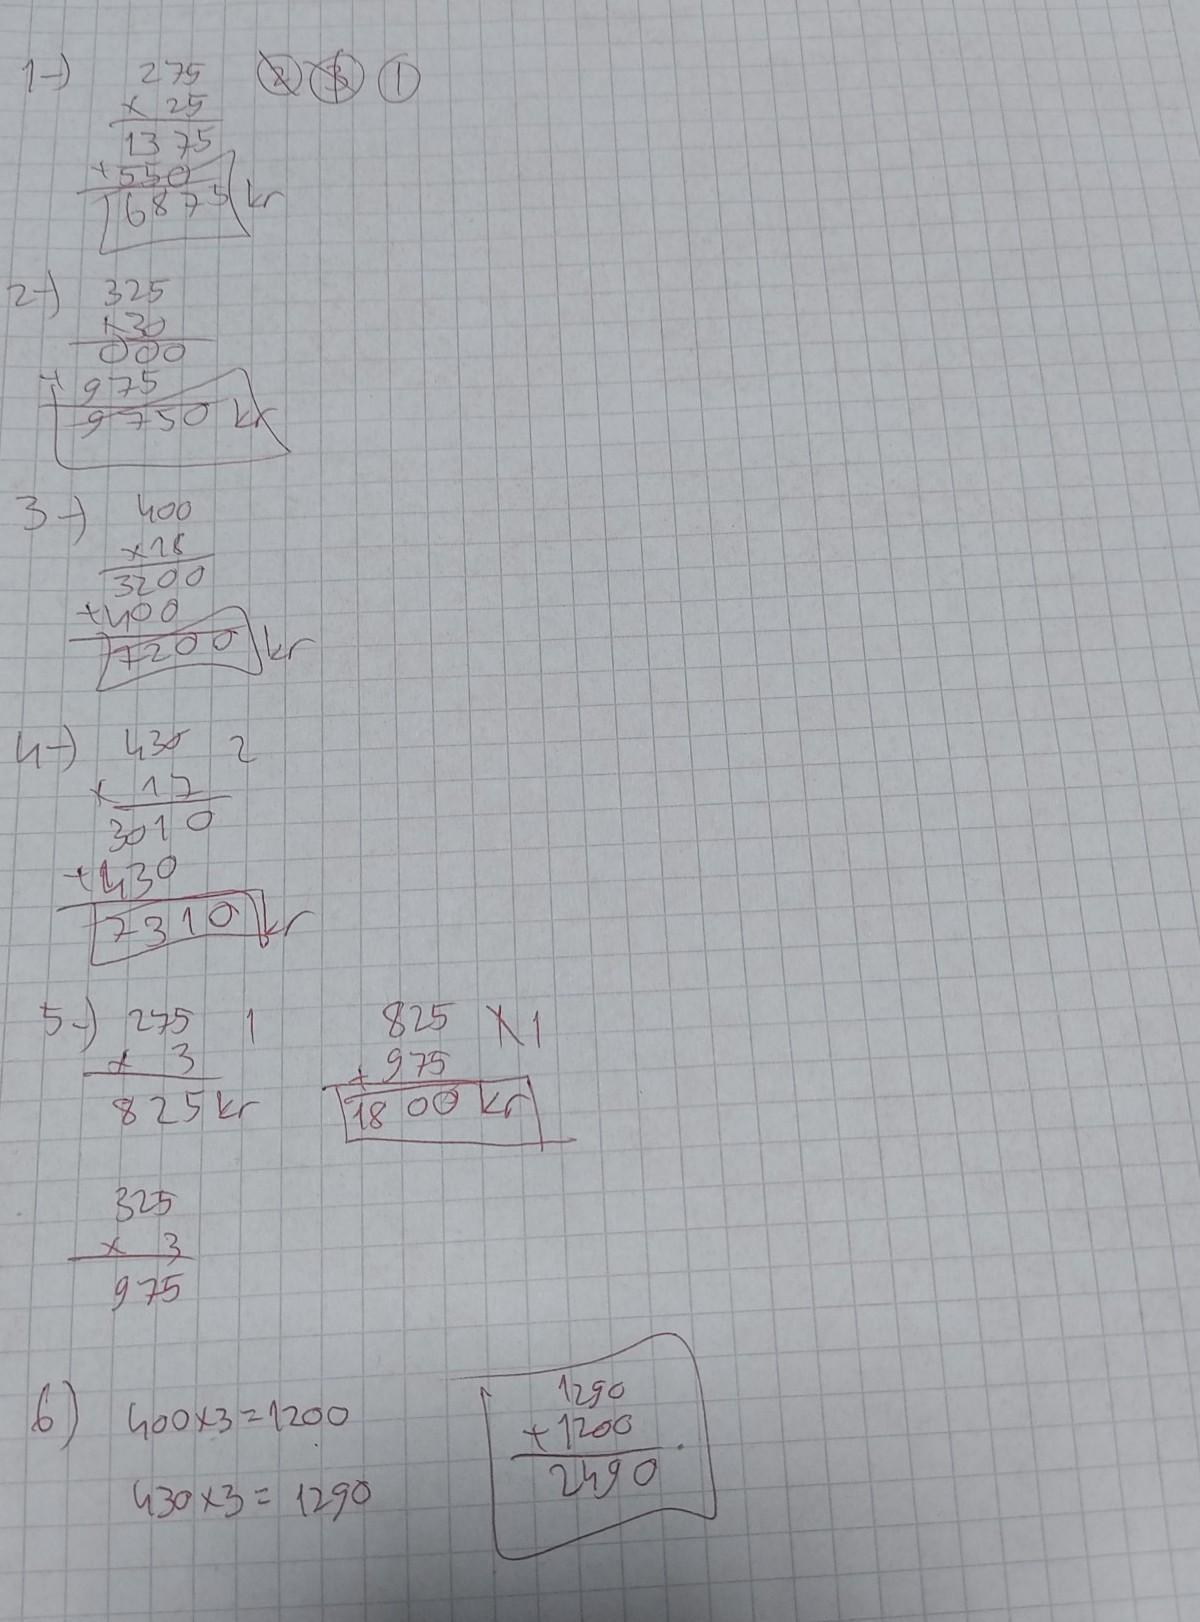 1-) 275 2 3 1
x 25
1375
+550
6875 kr
2-) 325
x30
000
+ 975
9750 kr
3-) 400
x18
3200
+400
7200 kr
4-) 430 2
x 17
3010
+430
7310 kr
5-) 275 1
x 3
825 kr
825 1
+ 975
1800 kr
325
x 3
975
6) 400x3=1200
430x3=1290
1290
+1200
2490